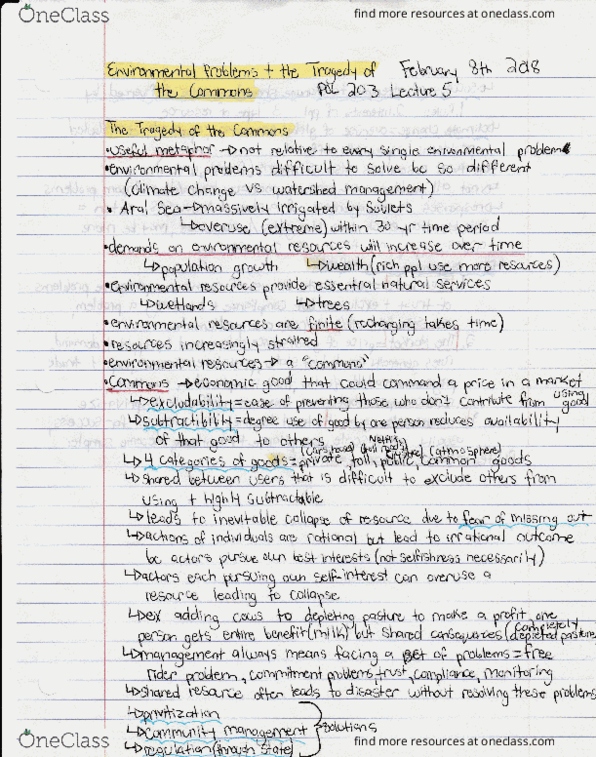 OneClass
find more resources at oneclass.com
Environmental Problems + the Tragedy of the Commons
February 8th 2018
POL 203 Lecture 5
The Tragedy of the Commons
•useful metaphor → not relative to every single environmental problem
•environmental problems difficult to solve bc so different
(climate change vs watershed management)
• Aral Sea → massively irrigated by Soviets
↳overuse (extreme) within 30 yr time period
•demands on environmental resources will increase over time
↳population growth ↳wealth (rich ppl use more resources)
•environmental resources provide essential natural services
↳wetlands ↳trees
•environmental resources are finite (recharging takes time)
•resources increasingly strained
•environmental resources → a "commons"
•Commons → economic good, that could command a price in a market
↳excludability = ease of preventing those who don't contribute from using good
↳subtractibility = degree use of good by one person reduces availability
of that good to others
↳4 categories of goods = private, toll, public, common goods
(atmosphere)
↳shared between users that is difficult to exclude others from
using + highly subtractable
↳leads to inevitable collapse of resource due to fear of missing out
↳actions of individuals are rational but lead to irrational outcome
bc actors pursue own best interests (not selfishness necessarily)
↳actors each pursuing own self-interest can overuse a
resource leading to collapse
↳ex adding cows to depleting pasture to make a profit, one
person gets entire benefit (milk) but shared (completely depleted pasture
↳management always means facing a set of problems = free
rider problem, commitment problems, trust, compliance, monitoring
↳shared resource often leads to disaster without resolving these problems
↳privitization
↳community management
↳regulation (through State)
solutions
OneClass
find more resources at oneclass.com